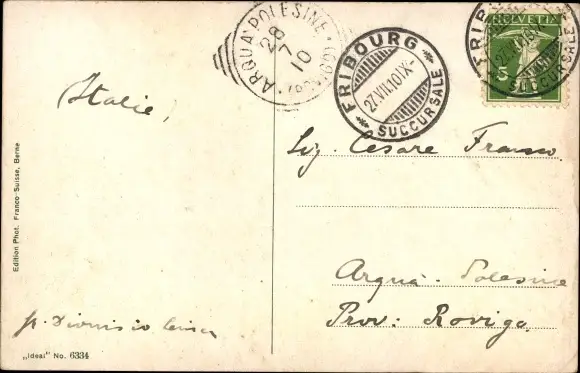 ARQUÀ POLESINE (ROVIGO)
28
7
10
FRIBOURG
27.VII.10 IX-
SUCCURSALE
FRIBOURG
SUCCURSALE
HELVETIA
5
Italie,
Sig. Cesare
Arquà-Polesine
Prov: Rovigo.
Edition Phot. Franco-Suisse, Berne
p. Dionisio
„Ideal" No. 6334